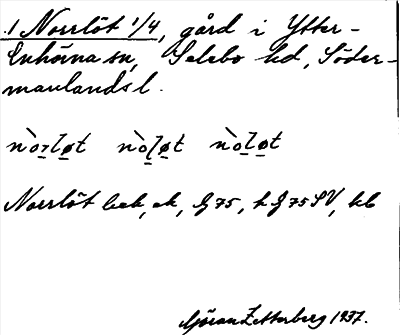 .1 Norrlöt 1/4, gård i Ytter-
Enhörna sn, Selebo hd, Söder-
manlands l.
nòrlø̱t nòḻø̱t nòḻø̱t
Norrlöt bek, ek, G 75, h G 75 SV, kb
Göran Zetterberg 1937.